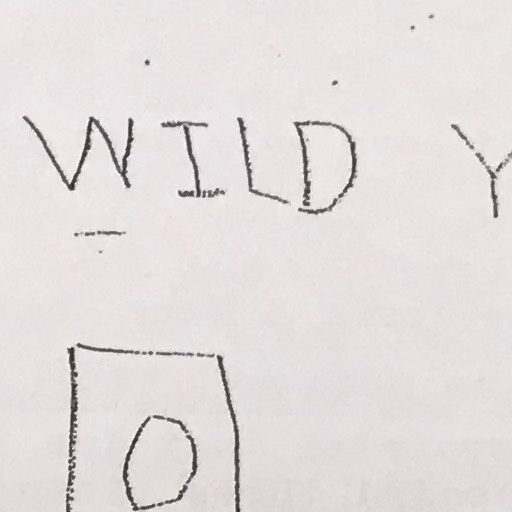 WILD Y